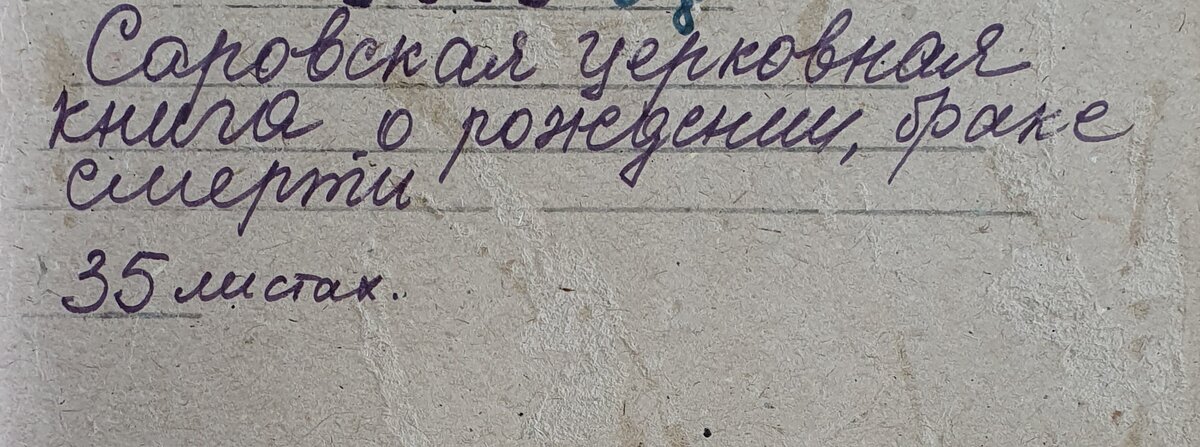 Саровская церковная
книга о рождении, браке
смерти
35 листах.